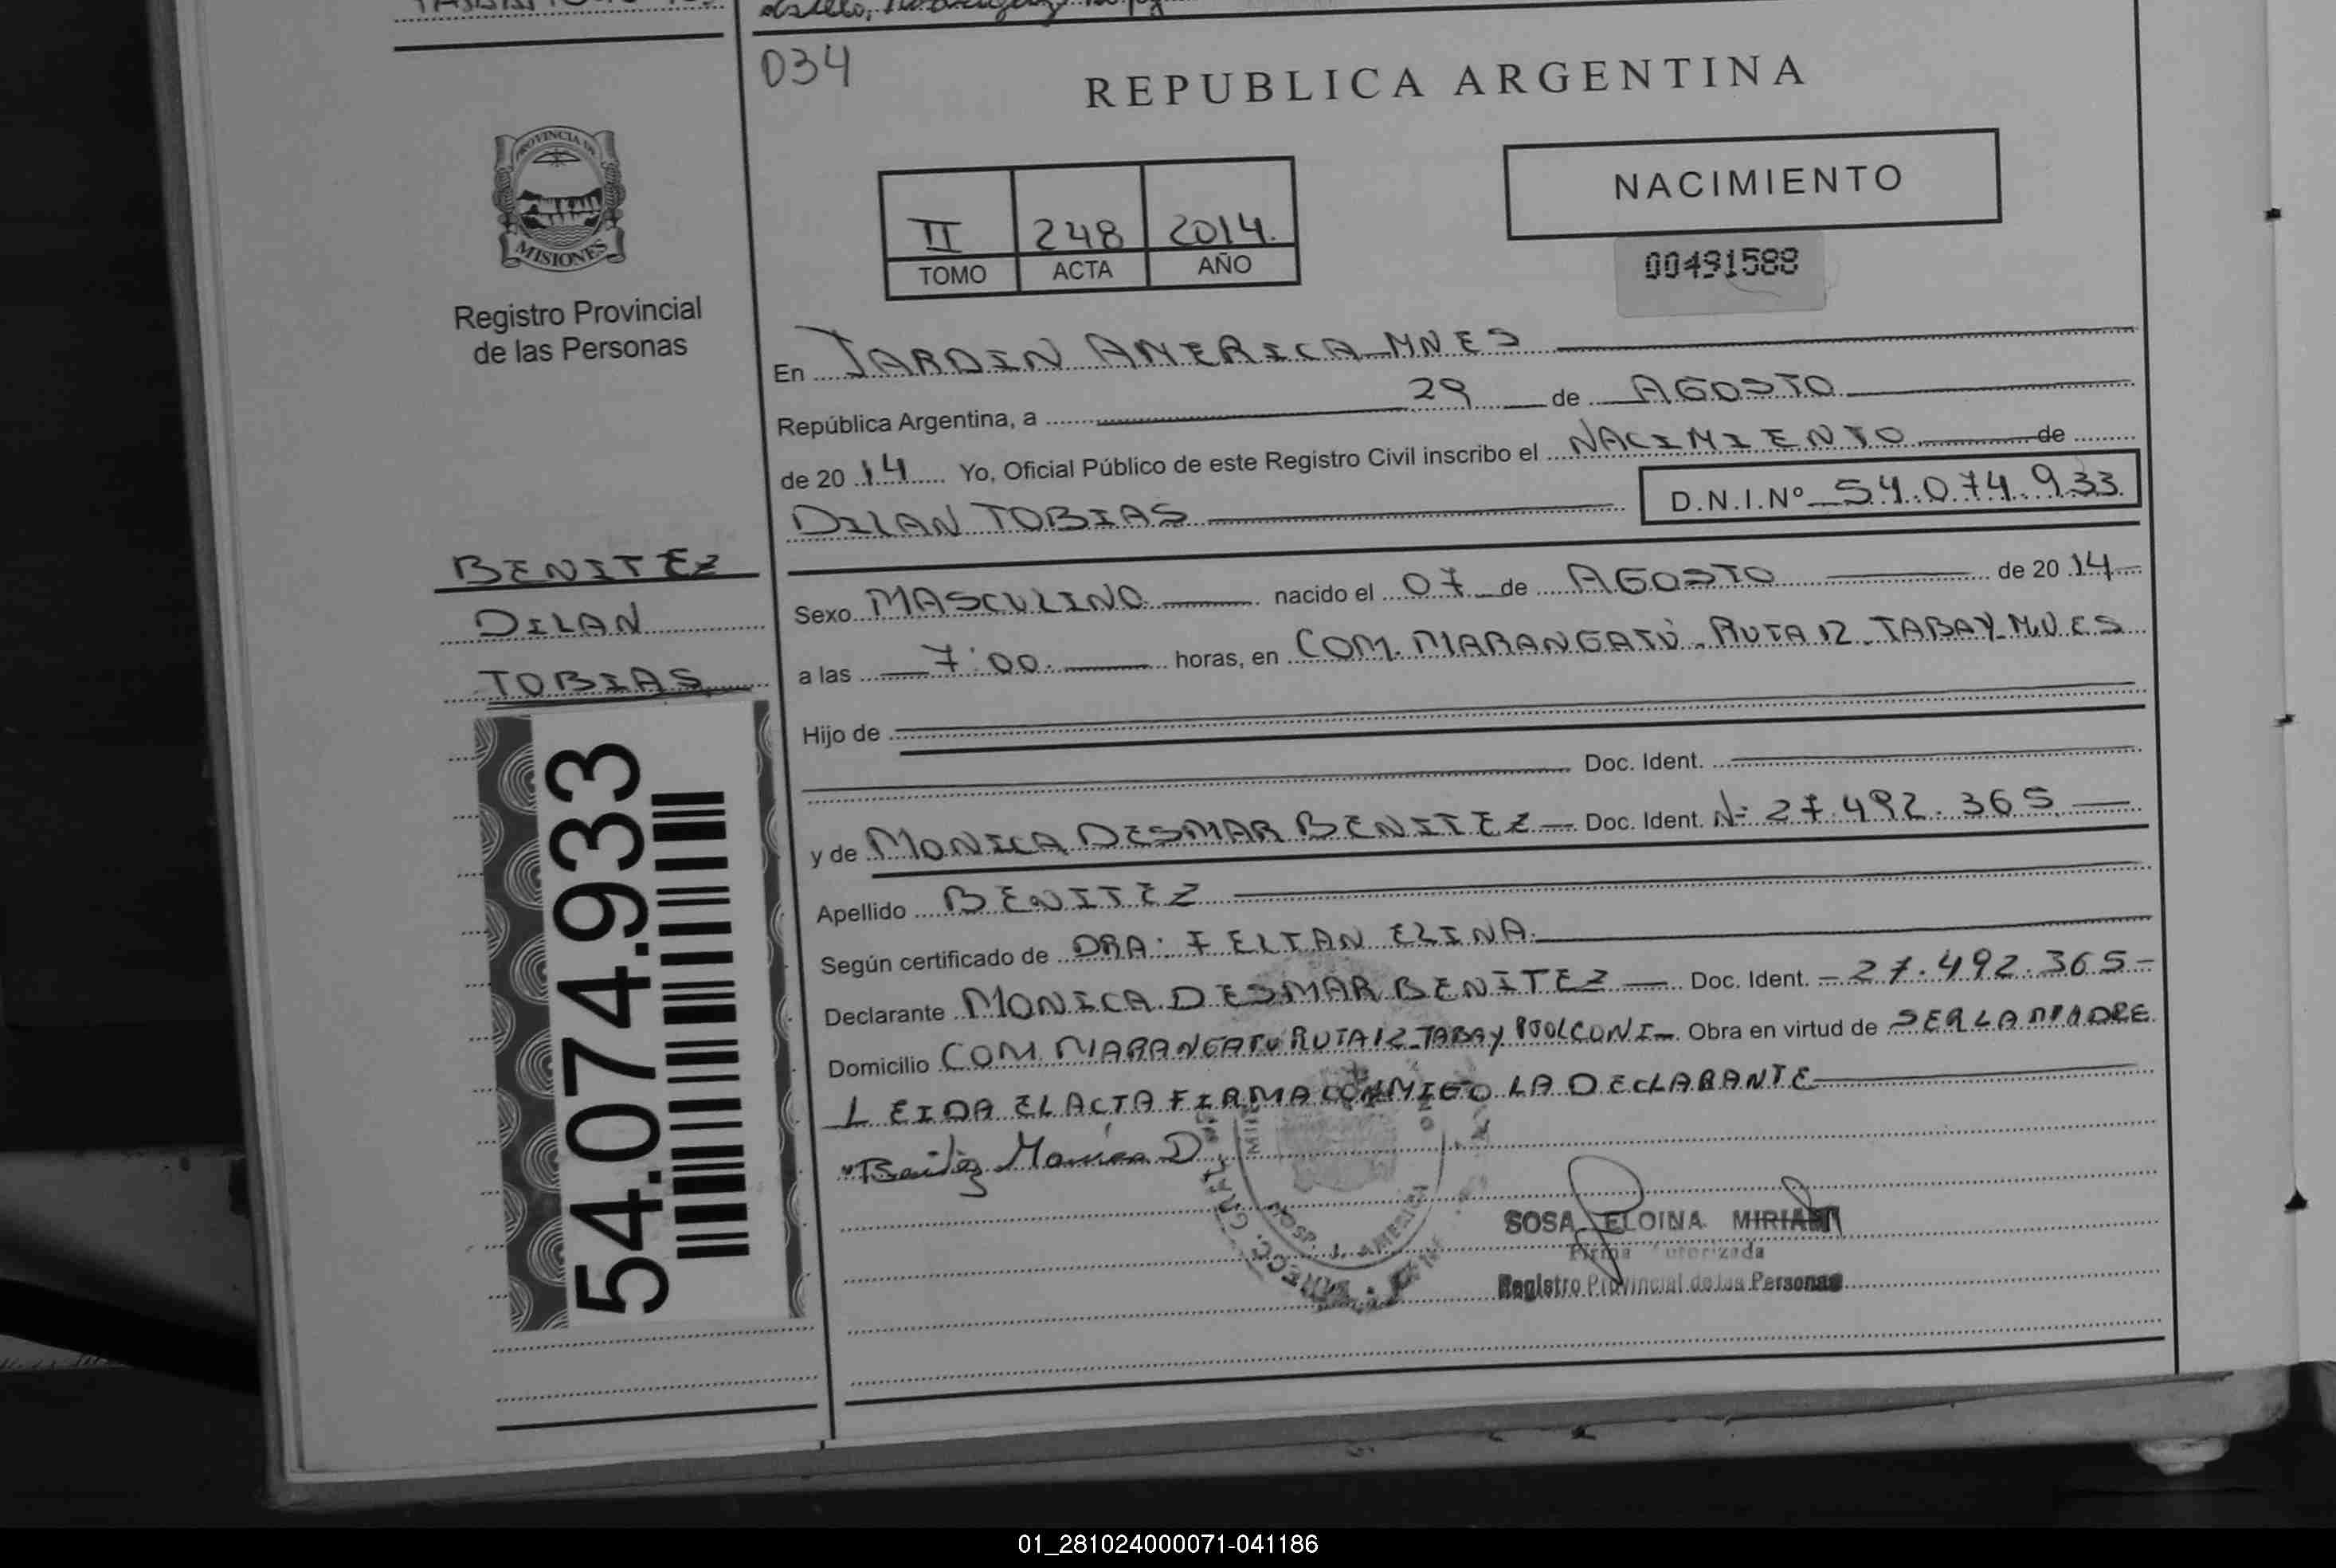 034
REPUBLICA ARGENTINA
PROVINCIA DE
MISIONES
Registro Provincial
de las Personas
II 248 2014.
TOMO ACTA AÑO
NACIMIENTO
00491588
En JARDIN AMERICA-MNES
República Argentina, a 29 de AGOSTO
de 20 14 Yo, Oficial Público de este Registro Civil inscribo el NACIMIENTO de
DILAN TOBIAS D.N.I.Nº 54.074.933
BENITEZ
DILAN
TOBIAS
54.074.933
Sexo MASCULINO nacido el 07 de AGOSTO de 20 14
a las 7:00. horas, en COM. MARANGATÚ - RUTA 12 - TABAY MNES
Hijo de
Doc. Ident.
y de MONICA DESMAR BENITEZ Doc. Ident. Nº 27.492.365
Apellido BENITEZ
Según certificado de DRA: FELTAN ELINA.
Declarante MONICA DESMAR BENITEZ Doc. Ident. - 27.492.365-
Domicilio COM. MARANGATU RUTA 12-TABAY Obra en virtud de SER LA MADRE
LEIDA EL ACTA FIRMA CONMIGO LA DECLARANTE
Benitez Monica D
HOSP. J. AMERICA
SOSA ELOINA MIRIAM
Firma Autorizada
Registro Provincial de las Personas
01_281024000071-041186